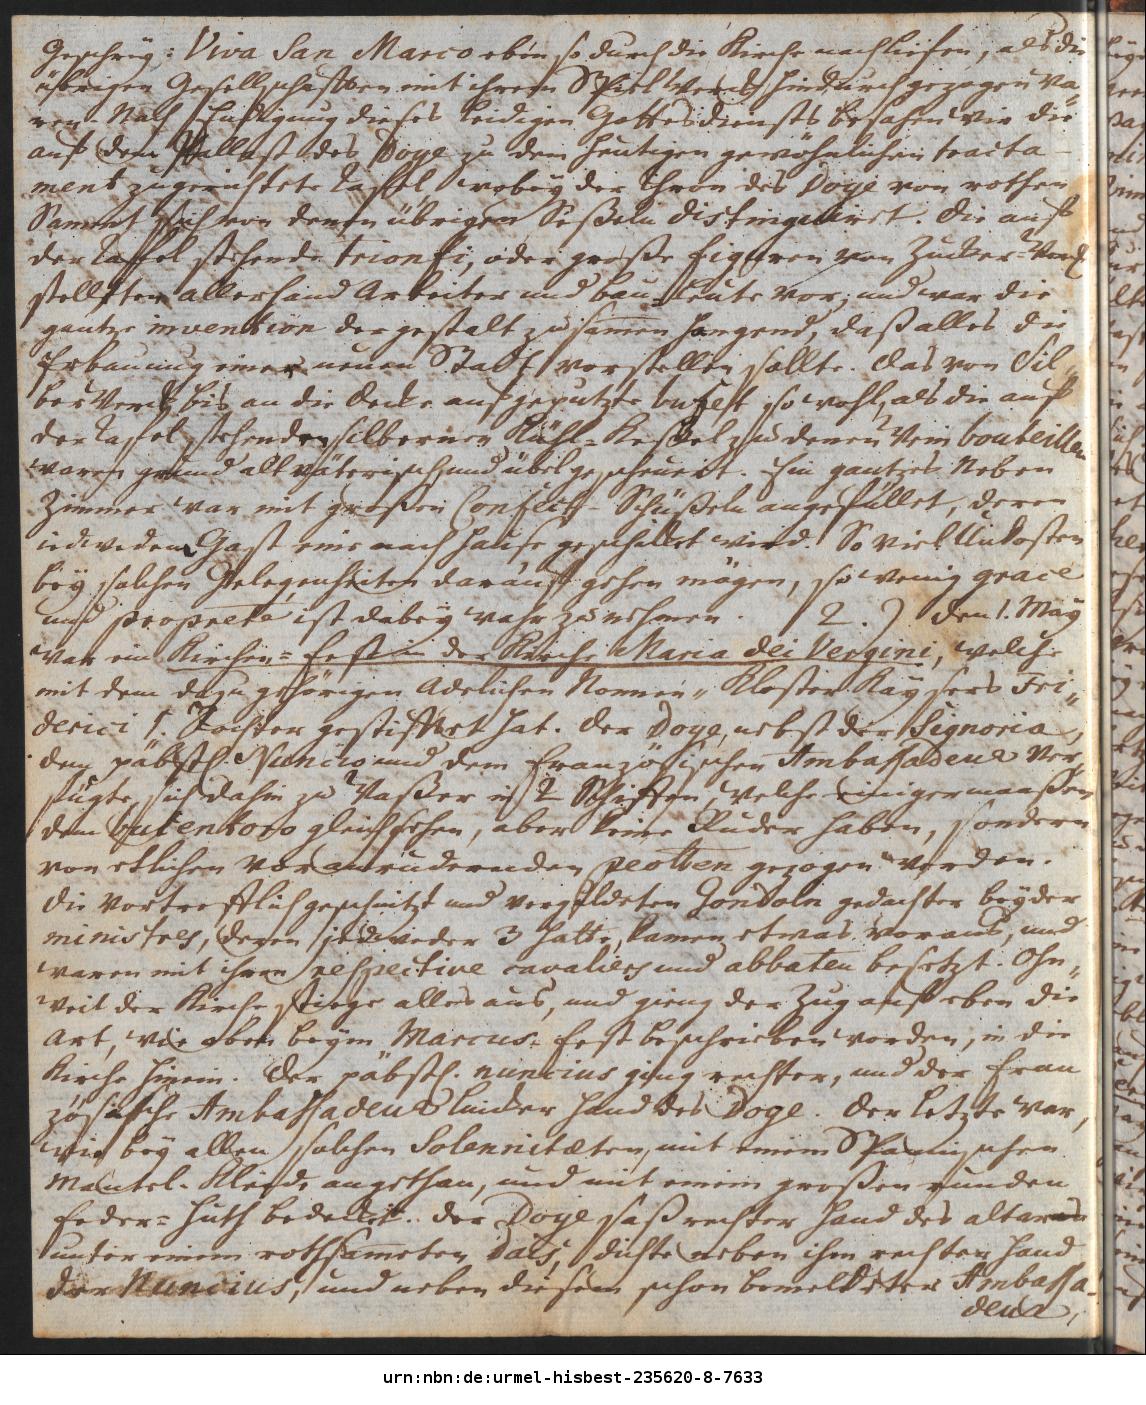 Geschrey: Viva San Marco eben so durch die Kirche nachliefen, als die
übrigen Gesellschafften mit ihrem Spiel Werck hindurch gezogen wa
ren. Nach Endigung dieses leidigen Gottesdiensts besahen wir die
auf dem Pallast des Doge zu dem heutigen gewöhnlichen tracta-
ment zugerichtete Taffel, wobey der Thron des Doge von rothen
Sammt sich von denen übrigen Seßeln distinguirt. Die auf
der Taffel stehende trionfi, oder große figuren von Zucker-Werck
stellten allerhand Arbeiter und bau-Leute vor, und war die
gantze invention der gestalt zusamen hangend, daß alles die
Erbauung einer neuen Stadt vorstellen sollte. Das von Sil-
ber Werck bis an die Decke aufgeputzte bufett, sowohl, als die auf
der Tafel stehenden silbernen Kühl-Keßel zu denen Wein bouteillen
waren grund altväterisch und übel gescheuert. Ein gantzes Neben
Zimmer war mit großen Confect-Schüßeln angefüllet, deren
iedweden Gast eine nach Hause geschickt wird. So viel Unkosten
bey solchen Gelegenheiten darauf gehen mögen, so wenig grace
und propreté ist dabey wahr zu nehmen. 2.) den 1. May
war ein Kirchen-fest in der Kirche Maria dei Vergini, welche
mit dem dazu gehörigen Adelichen Nonnen-Kloster Kaysers Fri-
derici I. Tochter gestifftet hat. Der Doge, nebst der Signoria,
dem päbstl. Nuncio und dem Französischen Ambassadeur ver
fügte sich dahin zu Waßer in 2 Schiffen, welche einigermaaßen
dem Bucentoro gleich sehen, aber keine Ruder haben, sondern
von etlichen voran rudernden peotten gezogen werden.
Die vortrefflich geschnitzt und vergüldeten Gondoln gedachter beyder
ministres, deren jedweder 3 hatte, kamen etwas voraus, und
waren mit ihren respective cavaliers und abbaten besetzt. Ohn-
weit der Kirche stiege alles aus, und gieng der Zug auf eben die
Art, wie oben beym Marcus-fest beschrieben worden, in die
Kirche hinein. Der päbstl. nuncius ging rechter, und der Fran
zösische Ambassadeur linker Hand des Doge. Der letzte war,
wie bey allen solchen Solennitæten, mit einem Spanischen
Mantel-Kleide angethan, und mit einem großen runden
Feder-Huth bedeckt. Der Doge saß rechter Hand des altars
unter einem rothsamten Dais, dichte neben ihm rechter Hand
der Nuncius, und neben diesem schon bemeldeter Ambassa-
deur,
urn:nbn:de:urmel-hisbest-235620-8-7633